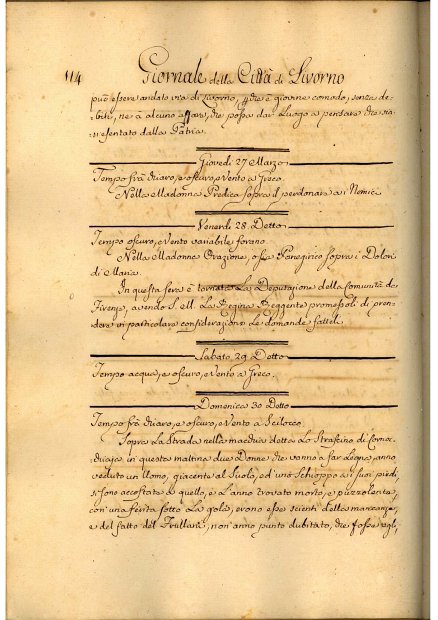 114 Giornale della Città di Livorno
può essere andato via di Livorno, che è giovine comodo, senza de-
biti, ne à alcuno affare, che possa dar Luogo a pensare che sia-
si esentato dalla Patria.
Giovedì 27 Marzo
Tempo frà chiaro, e oscuro, e Vento a Greco.
Nella Madonna Predica sopra il perdonare a i Nemici.
Venerdì 28. Detto
Tempo oscuro, e Vento variabile forano.
Nella Madonna Orazione, o sia Panegirico sopra i Dolori
di Maria.
In questa sera è tornata La Deputazione della Comunità da
Firenze, avendo S. M. La Regina Reggente promessoli di pren-
dere in particolare considerazione Le domande fatteli.
Sabato, 29 Detto
Tempo acquoso, e oscuro, e Vento a Greco.
Domenica 30 Detto
Tempo frà chiaro, e oscuro, e Vento a Scilocco.
Sopra La Strada nella macchia detta Lo Strascino di Cornoc-
chiaje in questa mattina due Donne che vanno a far Legne anno
veduto un Uomo, giacente al Suolo, ed uno Schioppo a i suoi piedi,
si sono accostate a quello, e L'anno trovato morto, e puzzolente,
con una ferita sotto La gola, erono esse scienti della mancanza,
e del fatto del Frullani, non anno punto dubitato, che fosse egli,